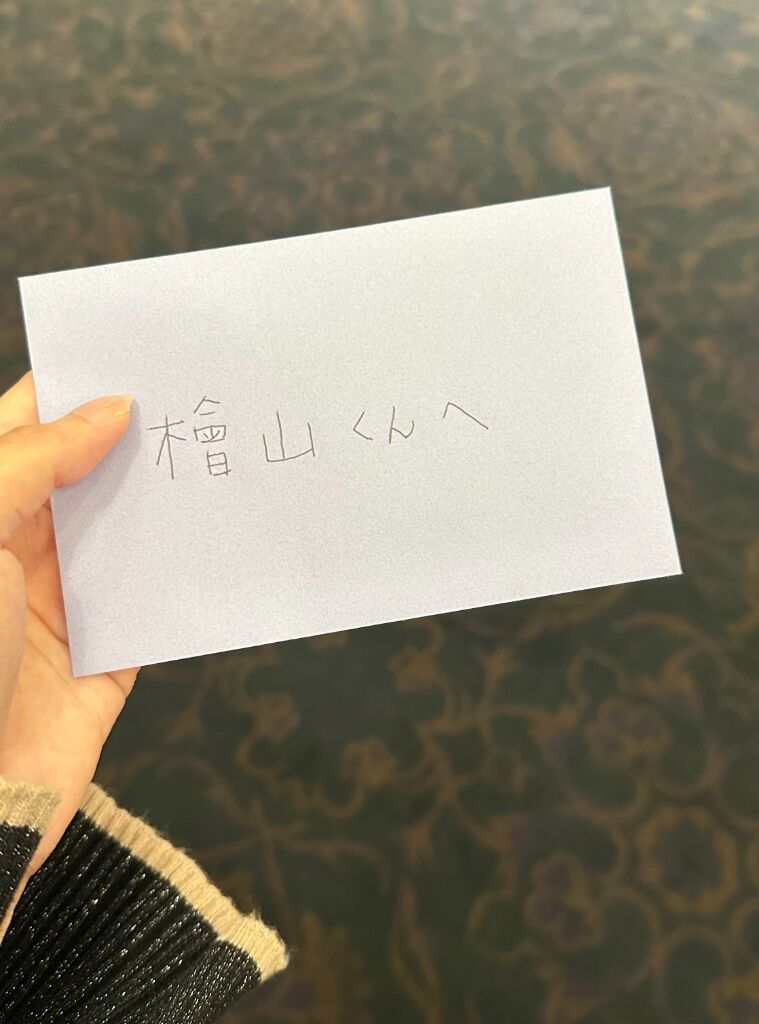 檜山くんへ